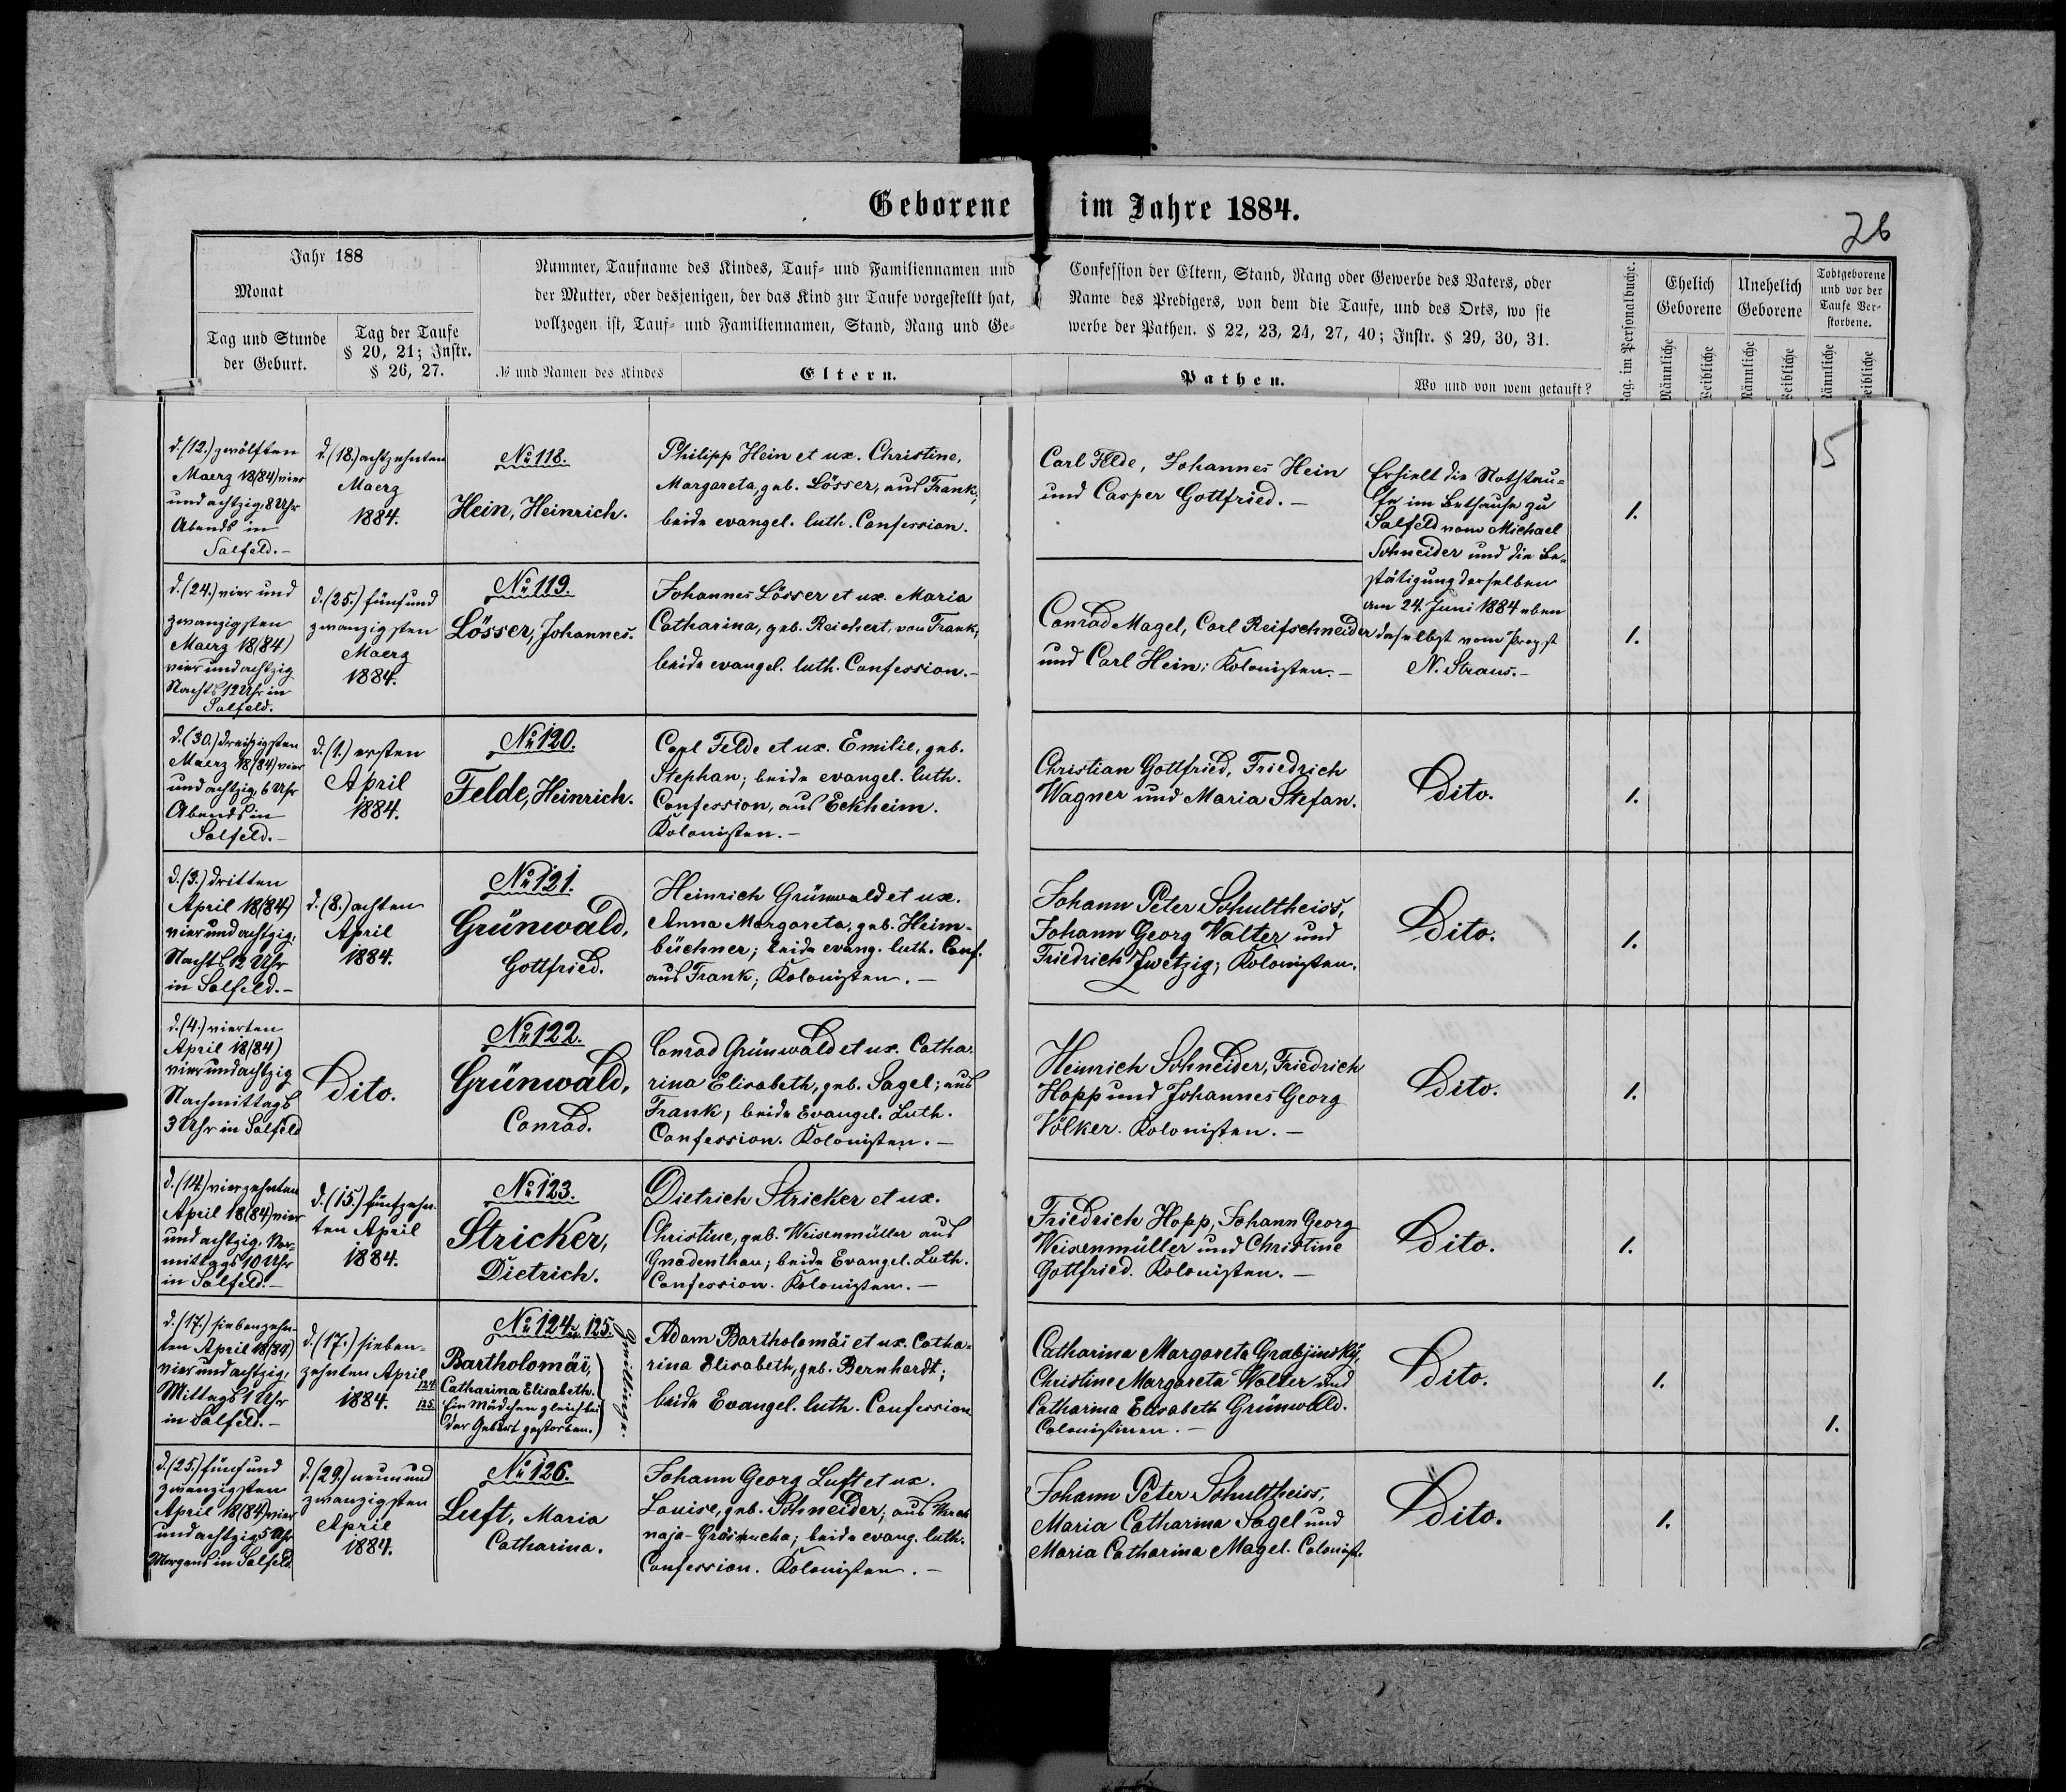 Geborene im Jahre 1884.
26
Jahr 188
Monat
Tag und Stunde
der Geburt.
Tag der Taufe
§ 20, 21; Instr.
§ 26, 27.
Nummer, Taufname des Kindes, Tauf- und Familiennamen und
der Mutter, oder desjenigen, der das Kind zur Taufe vorgestellt hat,
vollzogen ist, Tauf- und Familiennamen, Stand, Rang und Ge-
№ und Namen des Kindes
Eltern.
Confession der Eltern, Stand, Rang oder Gewerbe des Vaters, oder
Name des Predigers, von dem die Taufe, und des Orts, wo sie
werbe der Pathen. § 22, 23, 24, 27, 40; Instr. § 29, 30, 31.
Pathen.
Wo und von wem getauft?
Pag. im Personalbuche.
Ehelich
Geborene
Unehelich
Geborene
Todtgeborene
und vor der
Taufe Ver-
storbene.
Männliche
Weibliche
Männliche
Weibliche
Männliche
Weibliche
15
d. (12.) zwölften
Maerz 18(84) vier
und achtzig; 8 Uhr
Abends in
Salfeld.-
d. (18.) achtzehnten
Maerz
1884.
№ 118.
Hein, Heinrich.
Philipp Hein et ux. Christine,
Margareta, geb. Lösser, aus Frank,
beide evangel. luth. Confession.
Carl Felde, Johannes Hein
und Casper Gottfried.-
Erhielt die Nothtau-
fe im Bethause zu
Salfeld vom Michael
Schneider und die Be-
stätigung derselben
am 24. Juni 1884 eben
daselbst vom Propst
N. Straus.-
1.
d. (24.) vier und
zwanzigsten
Maerz 18(84)
vier und achtzig
Nachts 12 Uhr in
Salfeld.
d. (25.) fünf und
zwanzigsten
Maerz
1884.
№ 119.
Lösser, Johannes.
Johannes Lösser et ux. Maria
Catharina, geb. Reichert, von Frank,
beide evangel. luth. Confession.-
Conrad Magel, Carl Reifschneider
und Carl Hein; Kolonisten.-
1.
d. (30.) dreißigsten
Maerz 18(84) vier
und achtzig, 6 Uhr
Abends in
Salfeld.-
d. (1.) ersten
April
1884.
№ 120.
Felde, Heinrich.
Carl Felde et ux. Emilie, geb.
Stephan; beide evangel. luth.
Confession, aus Eckheim.
Kolonisten.-
Christian Gottfried, Friedrich
Wagner und Maria Stefan.
Dito.
1.
d. (3.) dritten
April 18(84)
vier und achtzig,
Nachts 12 Uhr
in Salfeld.-
d. (8.) achten
April
1884.
№ 121.
Grünwald,
Gottfried.
Heinrich Grünwald et ux.
Anna Margareta, geb. Heim-
büchner; beide evang. luth. Conf.
aus Frank, Kolonisten.-
Johann Peter Schultheiss,
Johann Georg Walter und
Friedrich Zwetzig; Kolonisten.
Dito.
1.
d. (4.) vierten
April 18(84)
vier und achtzig
Nachmittags
3 Uhr in Salfeld
Dito.
№ 122.
Grünwald,
Conrad.
Conrad Grünwald et ux. Catha-
rina Elisabeth, geb. Sagel; aus
Frank; beide Evangel. Luth.
Confession. Kolonisten.-
Heinrich Schneider, Friedrich
Hopp und Johannes Georg
Völker. Kolonisten.-
Dito.
1.
d. (14.) vierzehnten
April 18(84) vier
und achtzig. Vor-
mittags 10 Uhr
in Salfeld.-
d. (15.) fünfzehn-
ten April
1884.
№ 123.
Stricker,
Dietrich.
Dietrich Stricker et ux.
Christine, geb. Weisenmüller aus
Gnadenthau; beide Evangel. Luth.
Confession. Kolonisten.-
Friedrich Hopp, Johann Georg
Weisenmüller und Christine
Gottfried. Kolonisten.-
Dito.
1.
d. (17.) siebenzehn-
ten April 18(84)
vier und achtzig,
Mittags 1 Uhr
in Salfeld.-
d. (17.) sieben-
zehnten April
1884.
№ 124 u. 125.
Bartholomäi,
124. Catharina Elisabeth.
125. Ein Mädchen gleich bei
der Geburt gestorben.
Zwillinge.
Adam Bartholomäi et ux. Catha-
rina Elisabeth, geb. Bernhardt;
beide Evangel. luth. Confession
Catharina Margareta Grabjinsky,
Christine Margareta Walter und
Catharina Elisabeth Grünwald.
Colonistinen.-
Dito.
1.
1.
d. (25.) fünf und
zwanzigsten
April 18(84) vier
und achtzig 5 Uhr
Morgens in Salfeld
d. (29.) neun und
zwanzigsten
April
1884.
№ 126.
Luft, Maria
Catharina.
Johann Georg Luft et ux.
Louise, geb. Schneider; aus
naja-Gräsnucha; beide evang. luth.
Confession. Kolonisten.-
Johann Peter Schultheiss,
Maria Catharina Sagel und
Maria Catharina Magel. Colonist.
Dito.
1.